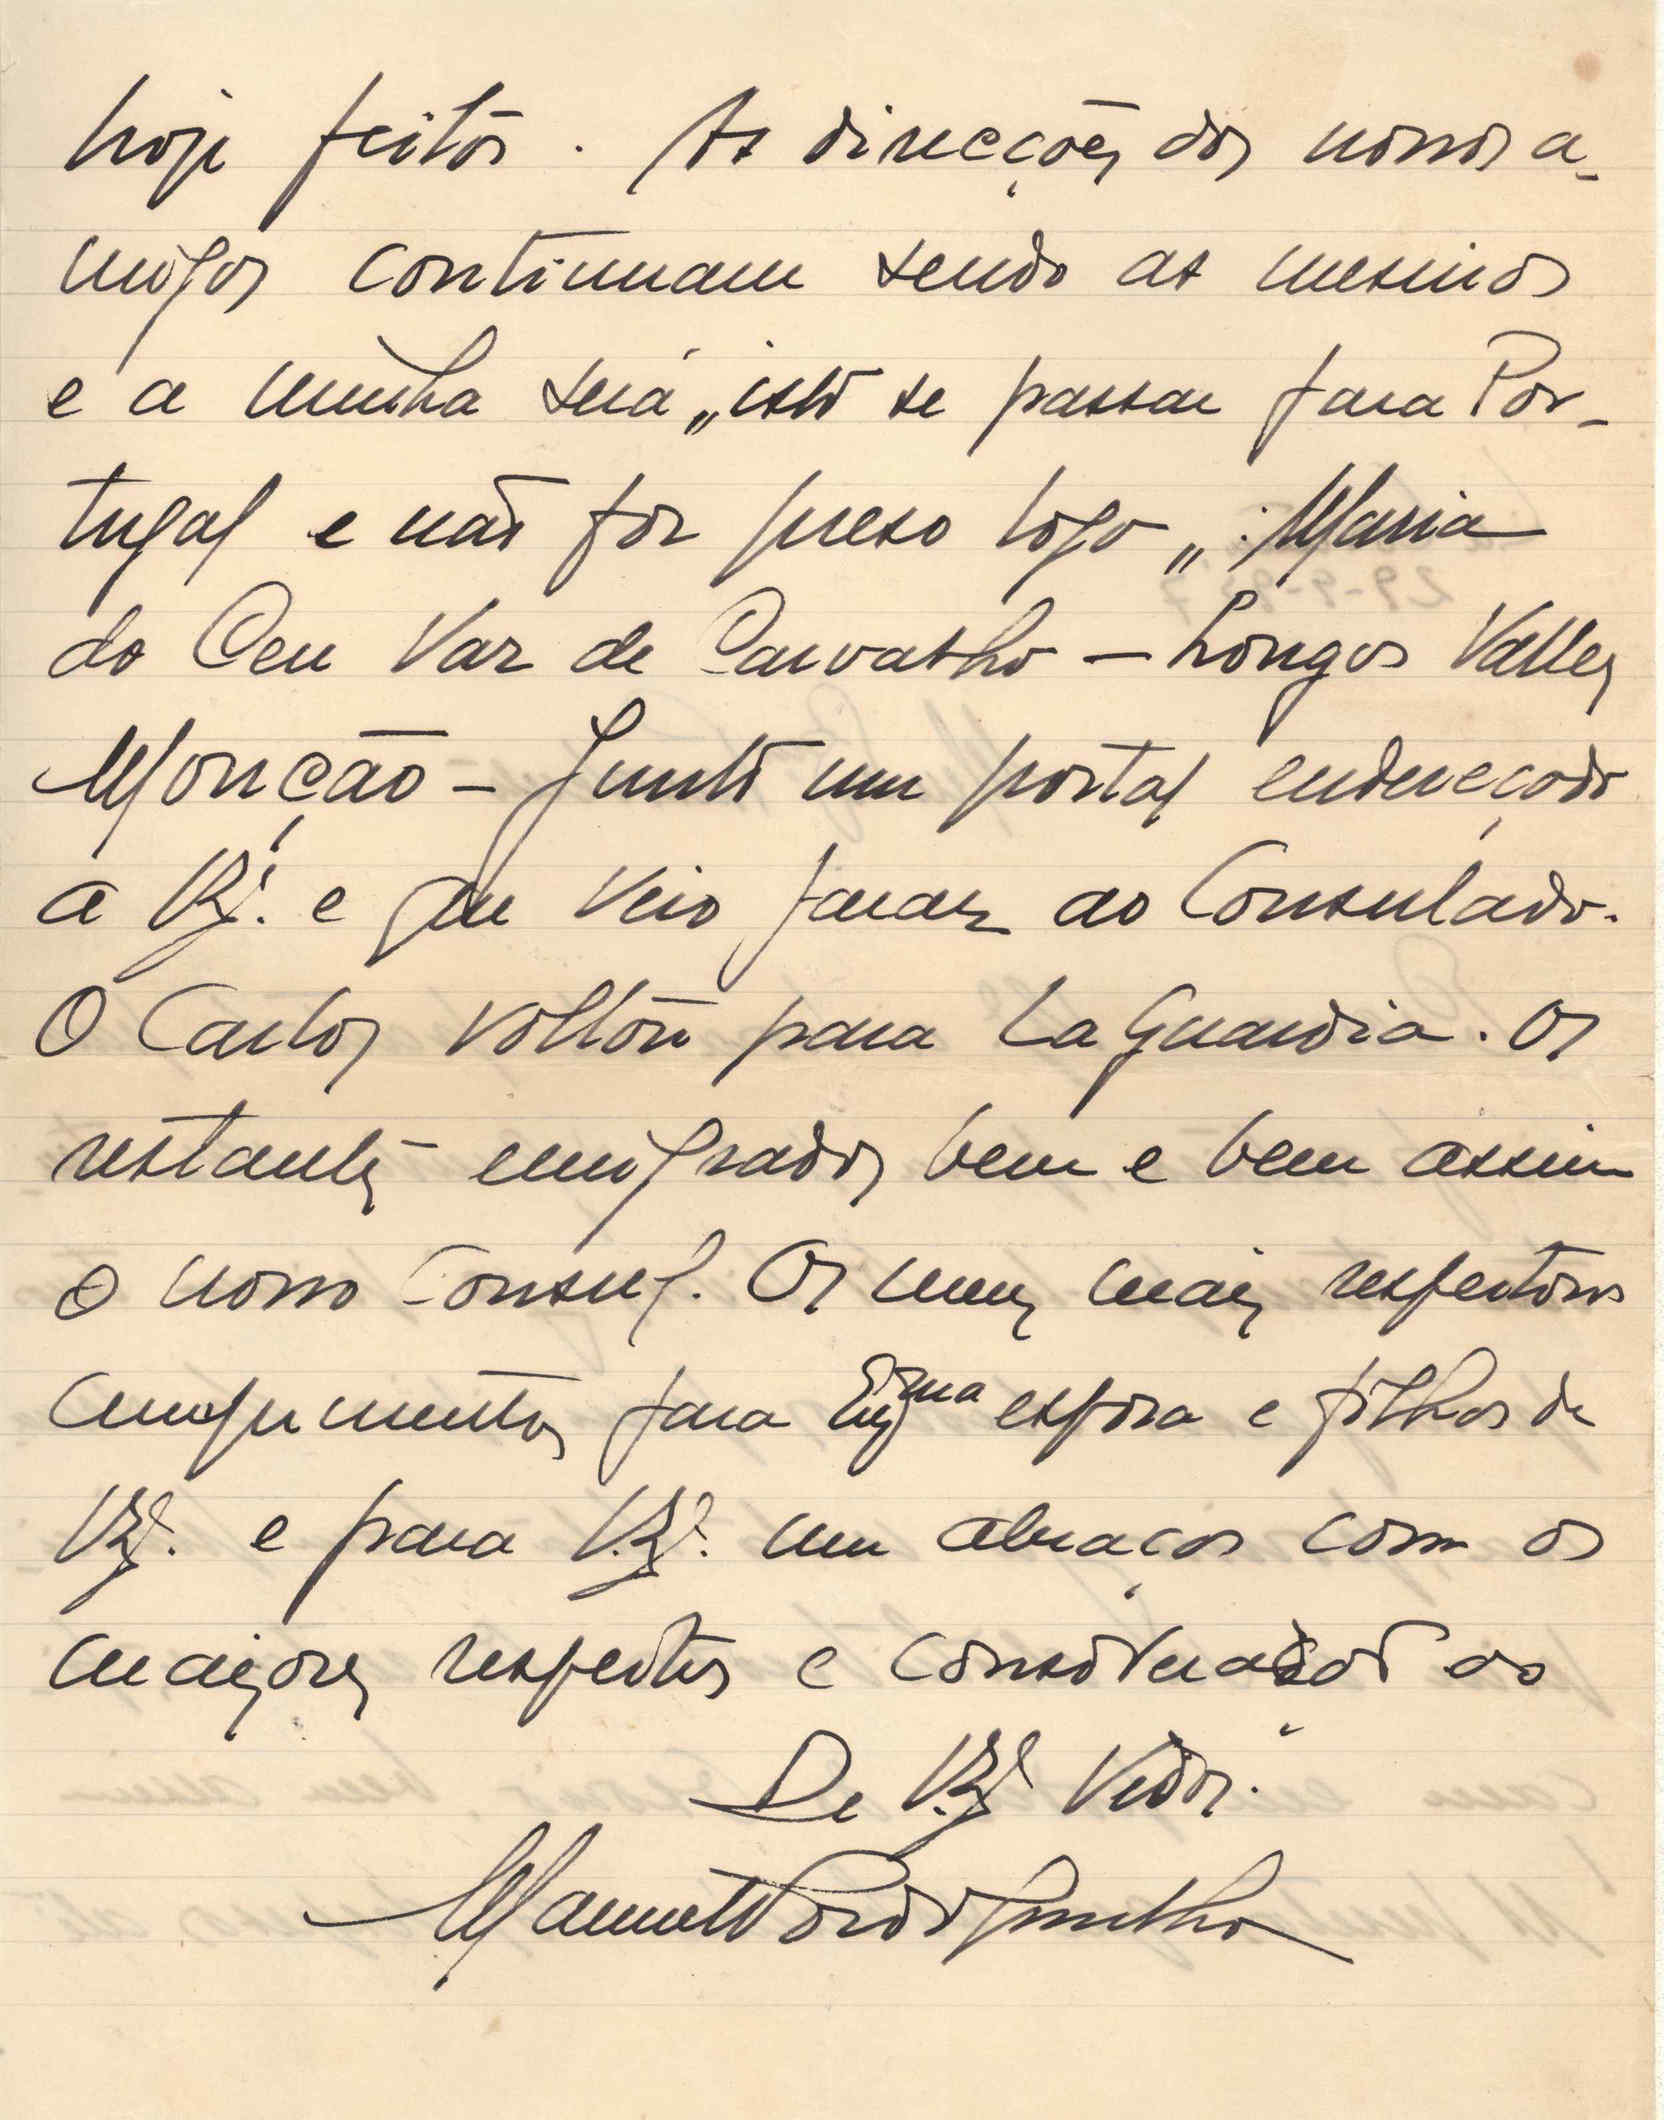 hoje feitos. As direcções dos nossos a-
migos continuam sendo as mesmas
e a minha será „isto se passar para Por-
tugal e não for preso logo„: Maria
do Ceu Vaz de Carvalho – Longos Valles
Monção – Junto um postal endereçado
a V. Ex.ª e que veio parar ao Consulado.
O Carlos voltou para La Guardia. Os
restantes emigrados bem e bem assim
o nosso Consul. Os meus mais respeitosos
cumprimentos para Exma esposa e filhos de
V. Ex.ª e para V. Ex.ª um abraços com os
maiores respeitos e consideração do
De V. Ex.ª
Manuel